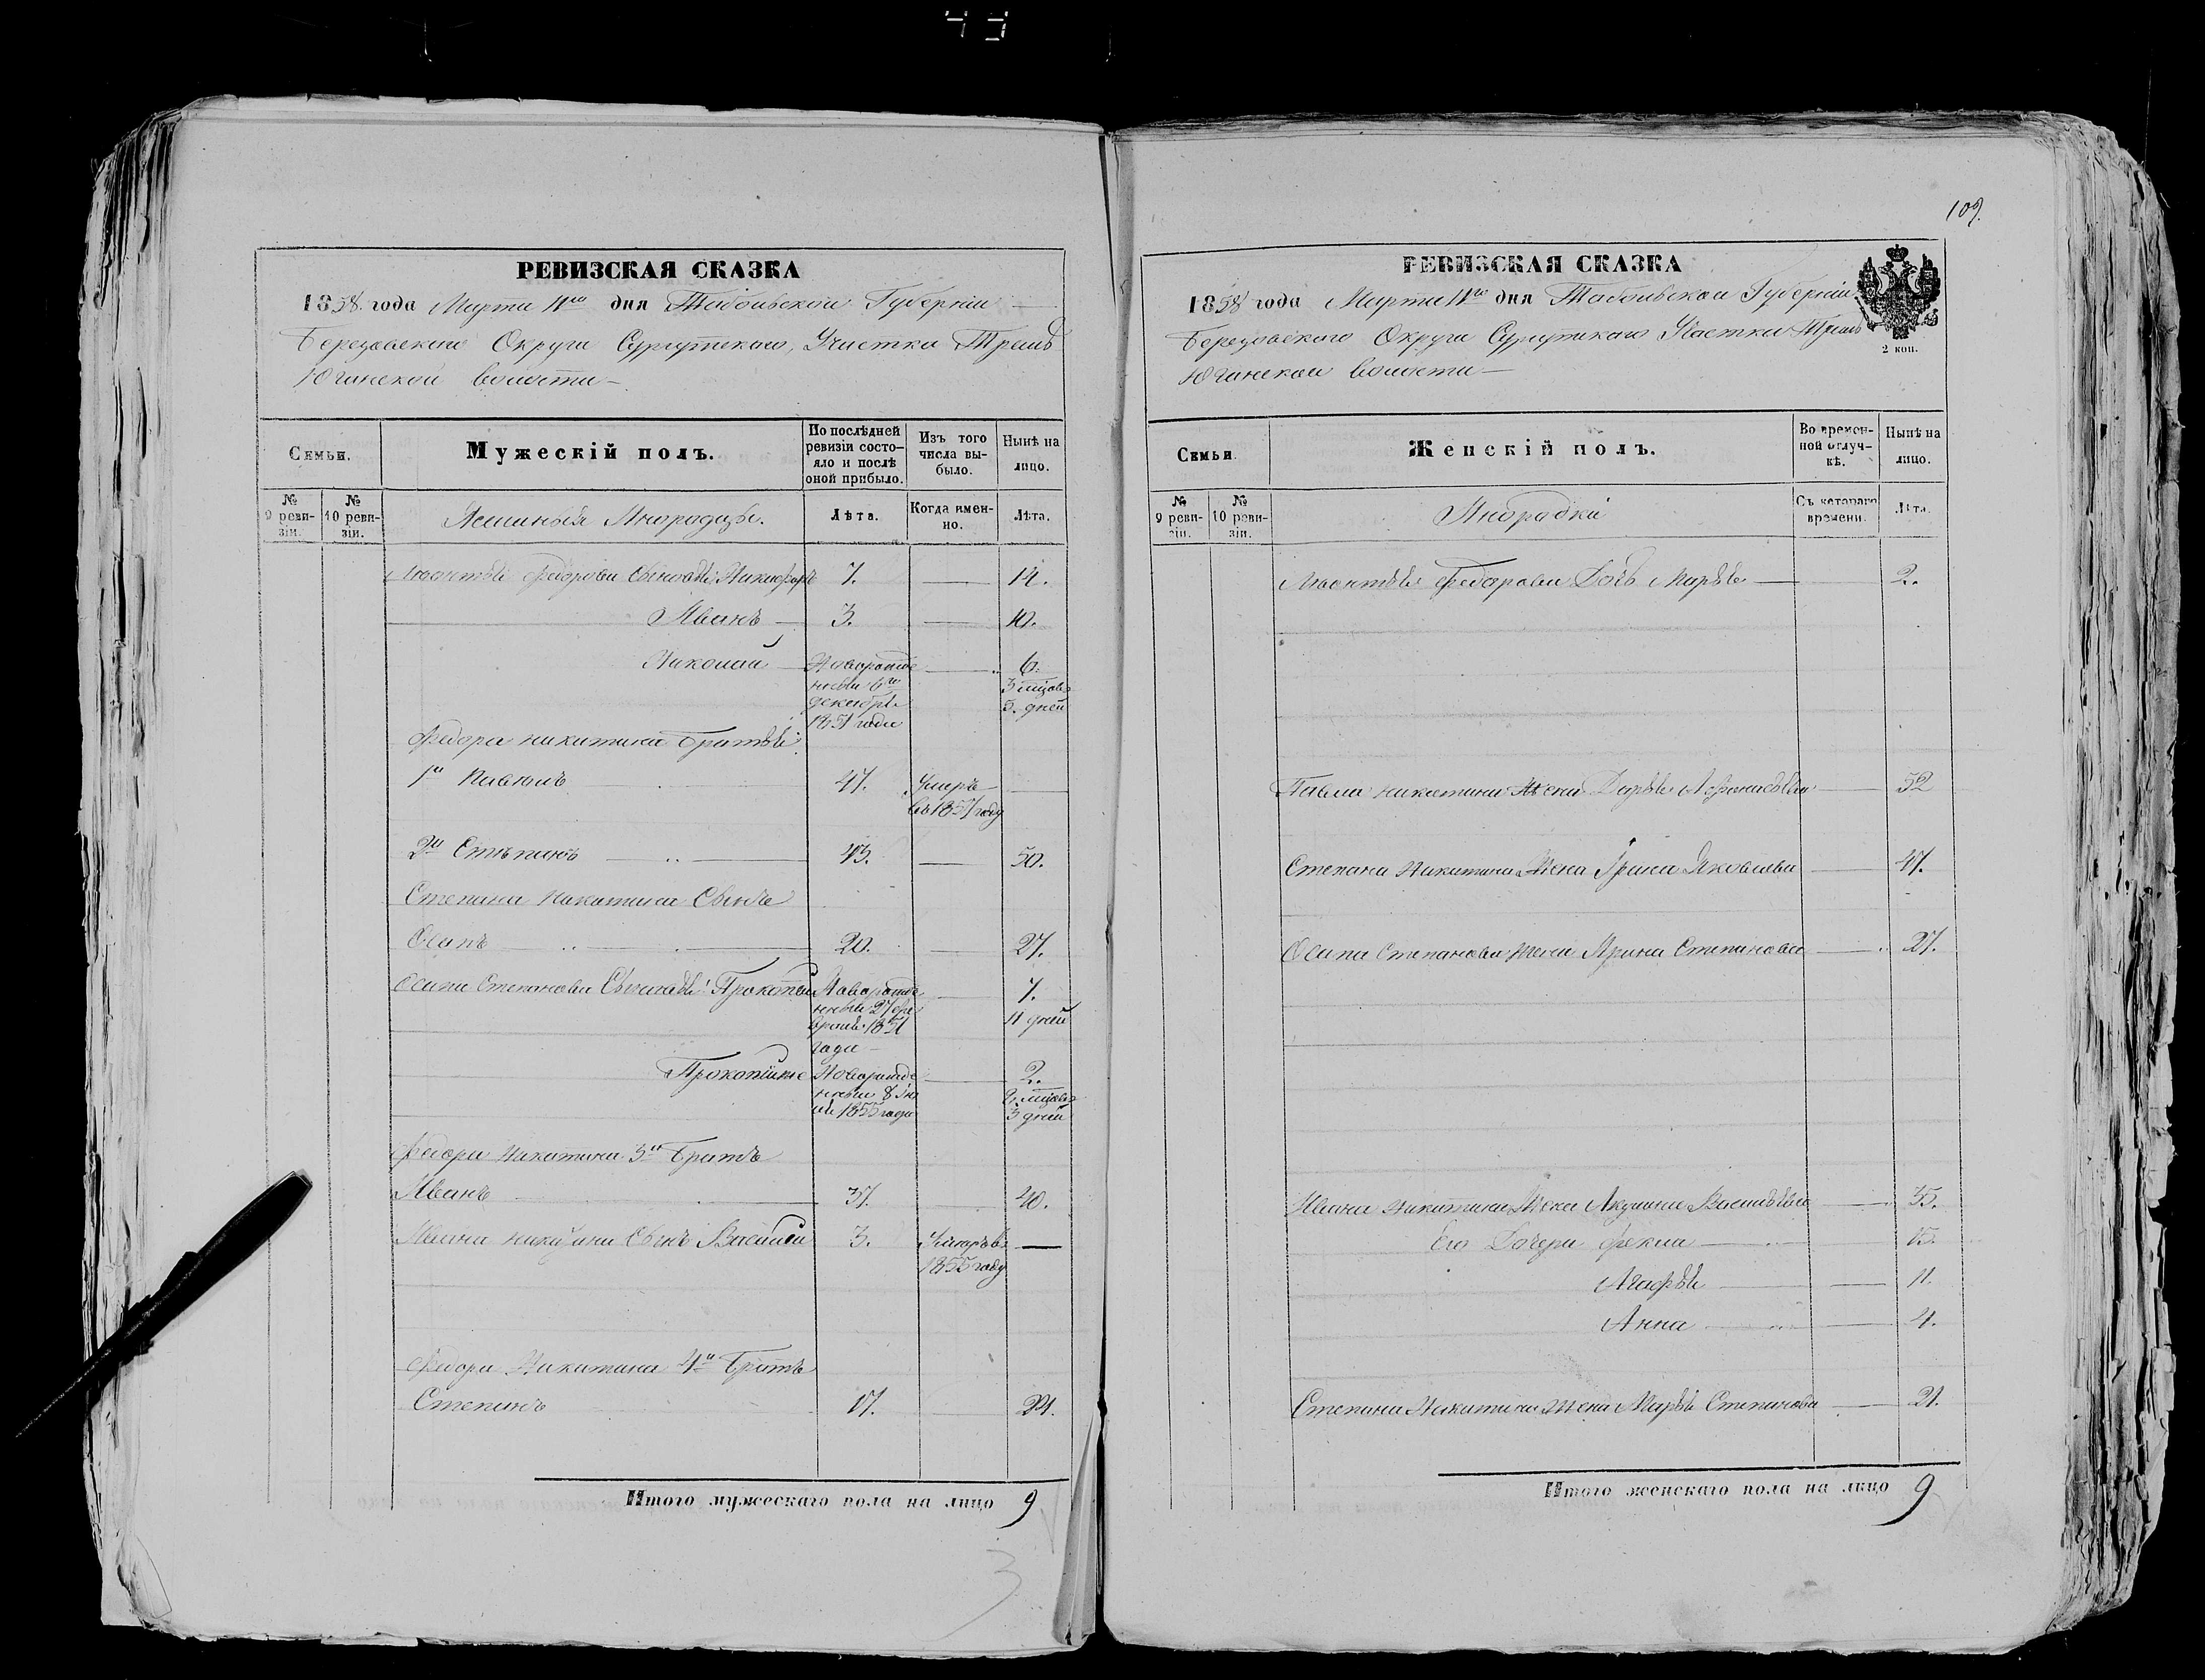 109.
РЕВИЗСКАЯ СКАЗКА
1858 года Марта 11го дня Тобольской Губерніи
Березовскаго Округа Сургутскаго, Участка Трехъ
Юганской волости
Семьи.
Мужескій полъ.
По послѣдней ревизіи состояло и послѣ оной прибыло.
Изъ того числа выбыло.
Нынѣ на лицо.
№ 9 ревизіи.
№ 10 ревизіи.
Ясашныя Инородцы.
Лѣта.
Когда именно.
Лѣта.
Леонтья Федорова Сыновья: Никифоръ 7. — 14.
Иванъ — 3. — 10.
Николай — Новорожде — 6.
нный 6го 3 мѣсяц
декабря 5. дней
1851 года
Федора Никитина Братья:
1й Павелъ 47. Умеръ —
въ 1857 году
2й Степанъ — 43. — 50.
Степана Никитина Сынъ
Осипъ — 20. — 27.
Осипа Степанова Сыновья: Прокопей Новорожде — 7.
нный 27 фе 11 дней
враля 1851
года —
Новорожде — 2.
нный 8 Ію
ля 1855 года 3 дней
Федора Никитина 3й Братъ
Иванъ — 37. — 40.
Ивана Никитина Сынъ Василей 3. Умеръ въ —
1855 году
Федора Никитина 4й Братъ
Степанъ 17. 24.
Итого мужескаго пола на лицо 9
РЕВИЗСКАЯ СКАЗКА
1858 года Марта 11го дня Тобольской Губерніи
Березовскаго Округа Сургутскаго Участка Трехъ
2 коп.
Юганской волости —
Семьи.
Женскій полъ.
Во временной отлучкѣ.
Нынѣ на лицо.
№ 9 ревизіи.
№ 10 ревизіи.
Инородки
Съ котораго времени.
Лѣта.
Леонтья Федорова Дочь Марья — 2.
Павла Никитина Жена Дарья Афонасьева — 52
Степана Никитина Жена Ирина Яковлева — 47.
Осипа Степанова Жена Арина Степанова — 27.
Ивана Никитина Жена Акулина Васильева — 35.
Его Дочери Фекла — 15.
Агафья — 11.
Анна — 4.
Степана Никитина Жена Марья Степанова — 21.
Итого женскаго пола на лицо 9